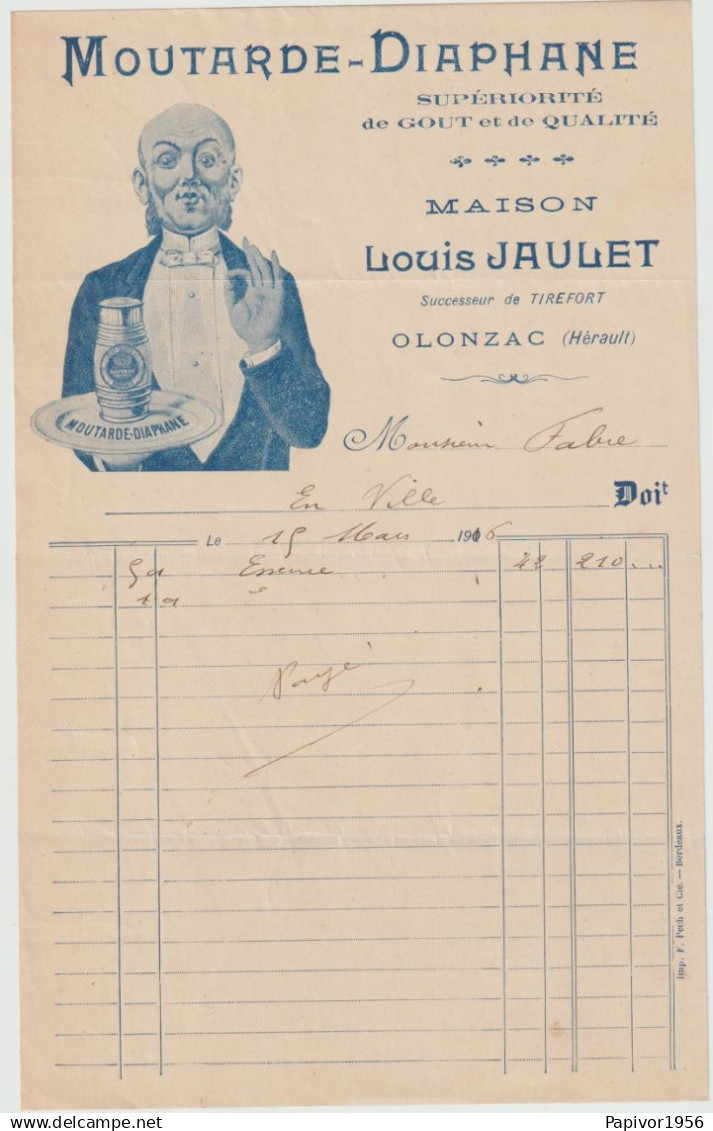 MOUTARDE-DIAPHANE
SUPÉRIORITÉ
de GOUT et de QUALITÉ
MAISON
Louis JAULET
Successeur de TIREFORT
OLONZAC (Hérault)
MOUTARDE-DIAPHANE
Monsieur Fabre
En Ville Doit
Le 15 Mars 1916
5 Essence 42 210
1
Payé
Imp. F. Pech et Cie. — Bordeaux.
Papivor1956